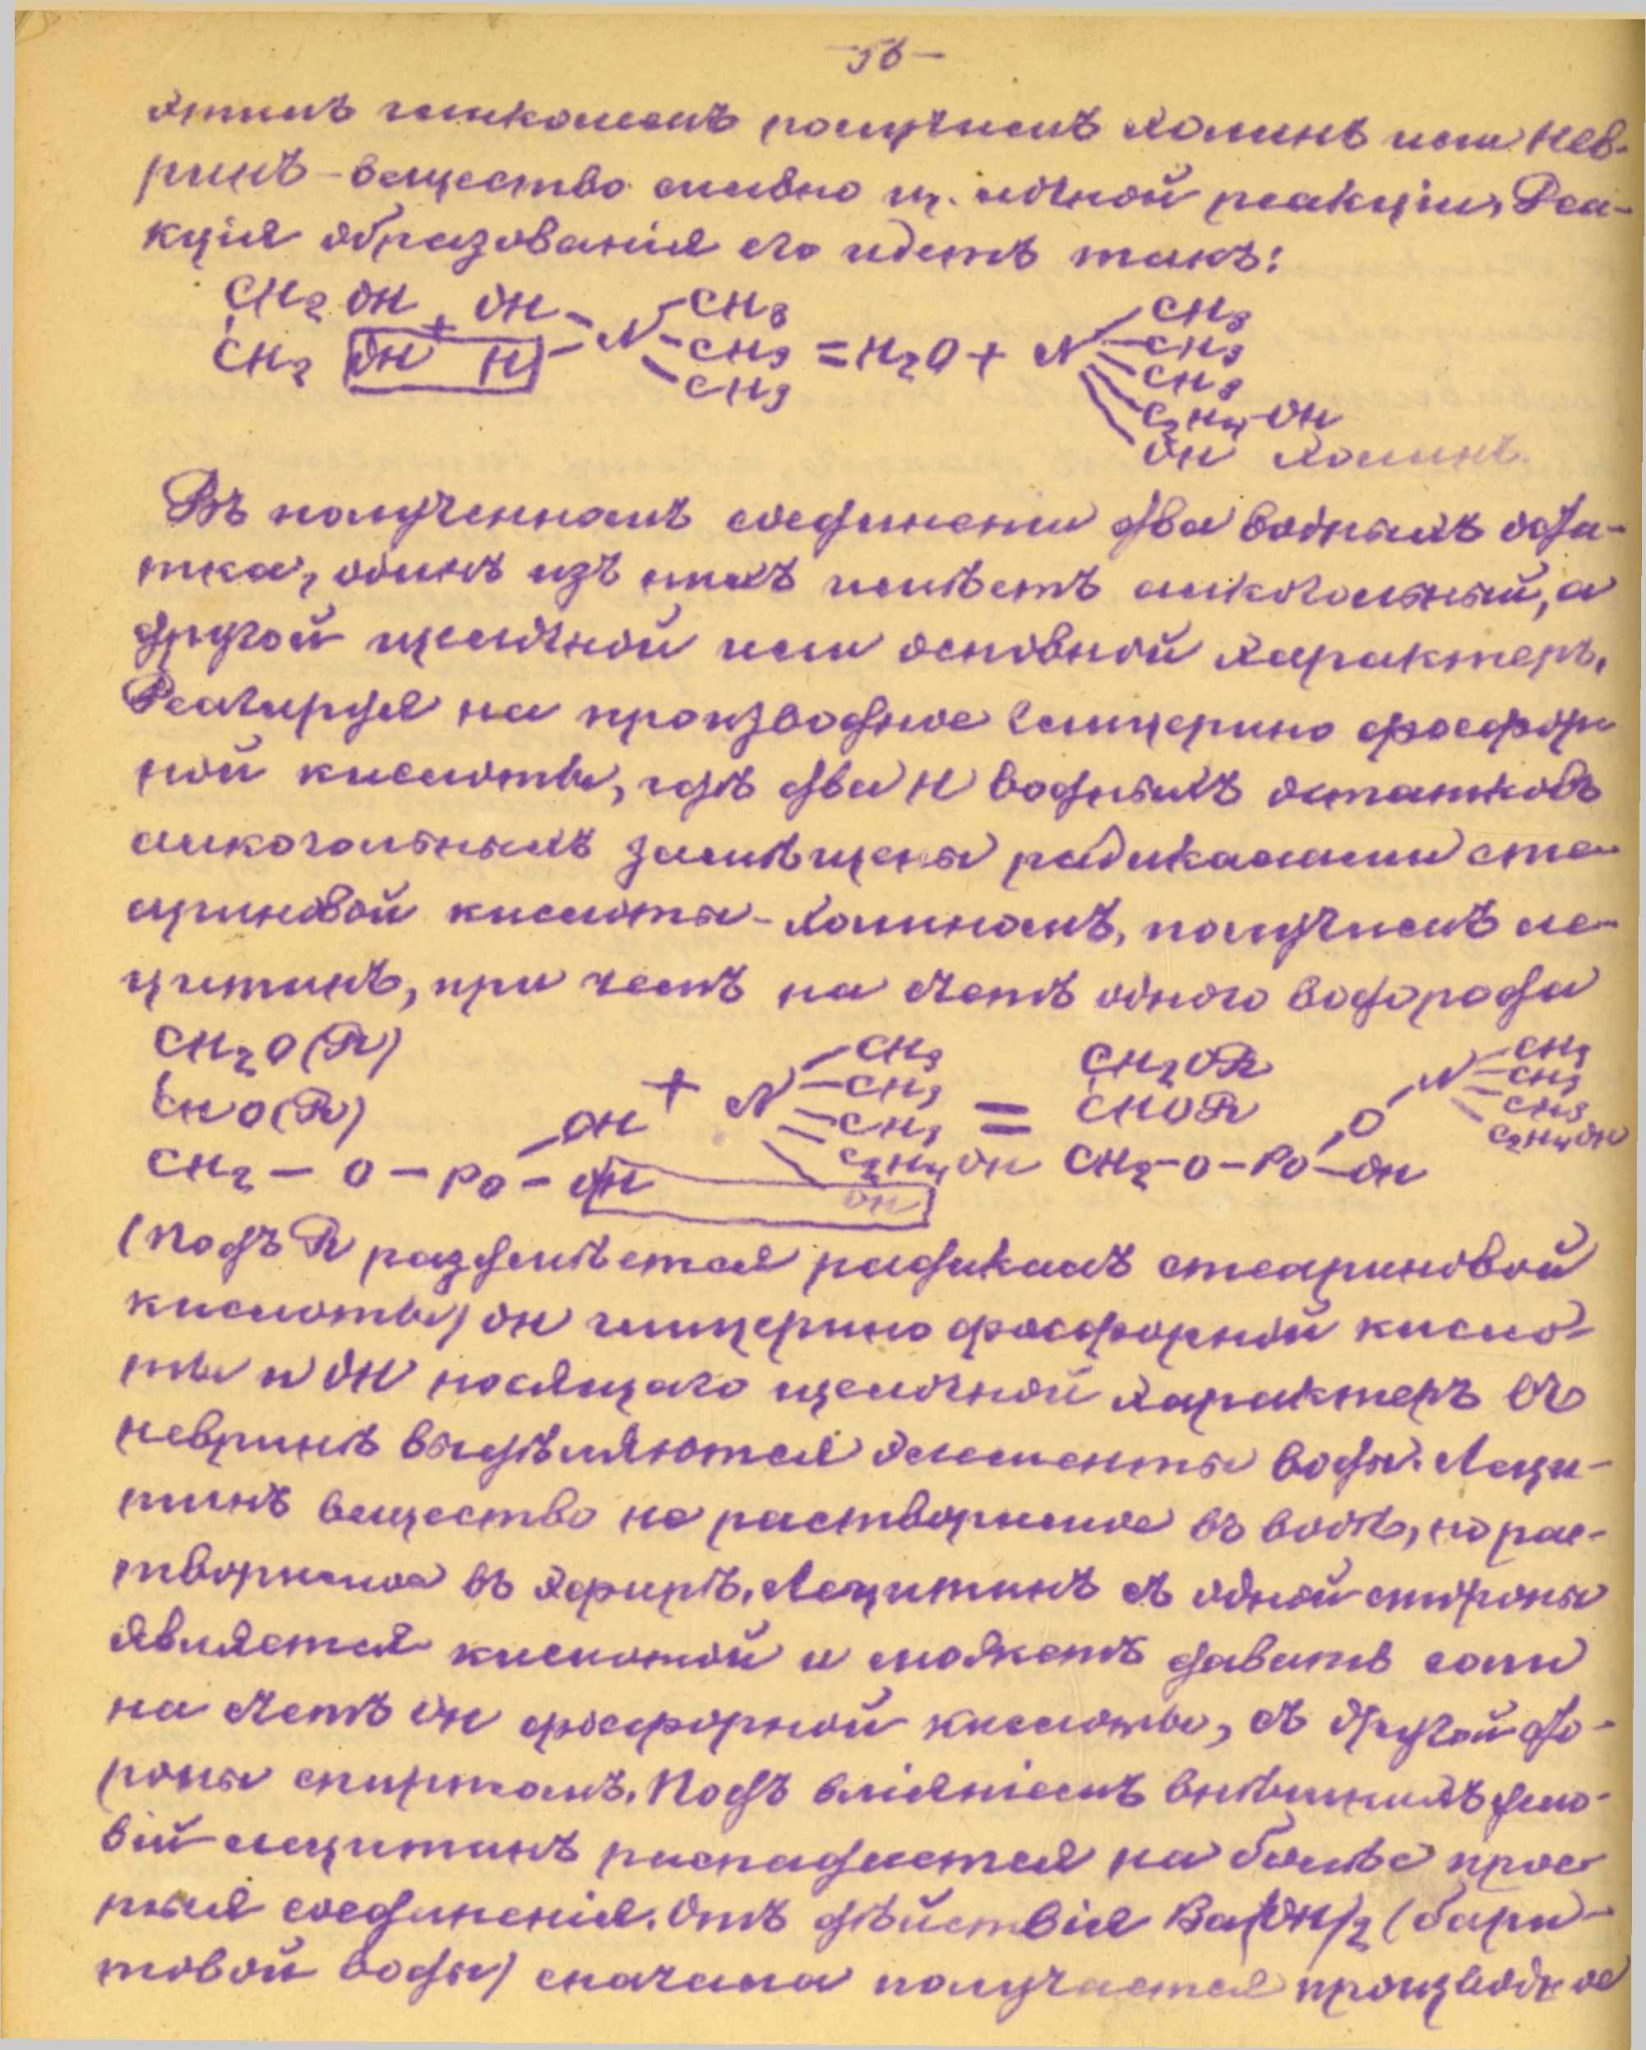 -56-
этилъ гликолемъ получимъ холинъ или нев-
ринъ - вещество сильно щелочной реакціи, Реа-
кція образованія его идетъ такъ:
CH2 OH + OH - N - CH3 = H2O + N - CH3
CH2 OH H - CH3 - CH3
CH3 CH3
C2H4 OH
OH Холинъ.
Въ полученномъ соединеніи два водныхъ оста-
тка, одинъ изъ нихъ имѣетъ алкогольный, а
другой щелочной или основной характеръ.
Реагируя на производное глицерино фосфор
ной кислоты, гдѣ два H водныхъ остатковъ
алкогольныхъ замѣщены радикалами сте-
ариновой кислоты - холиномъ, получимъ ле-
цитинъ, при чемъ на счетъ одного водорода
CH2O(R) CH3 CH2OR CH3
CHO(R) OH + N - CH3 = CHOR O - N - CH3
CH3 CH3
CH2 - O - PO - OH C2H4OH CH2-O-PO-OH C2H4OH
OH
(Подъ R раздумѣется радикалъ стеариновой
кислоты) OH глицерино фосфорной кисло-
ты и OH носящаго щелочной характеръ въ
невринѣ выдѣляются элементы воды. Леци-
тинъ вещество не растворимое въ водѣ, но рас-
творимое въ эфирѣ. Лецитинъ съ одной стороны
является кислотой и можетъ давать соли
на счетъ OH фосфорной кислоты, съ другой сто-
роны спиртомъ. Подъ вліяніемъ внѣшнихъ усло-
вій лецитинъ распадается на болѣе прос
тыя соединенія. Отъ дѣйствія Ba(OH)2 (бари-
товой воды) сначала получается производное